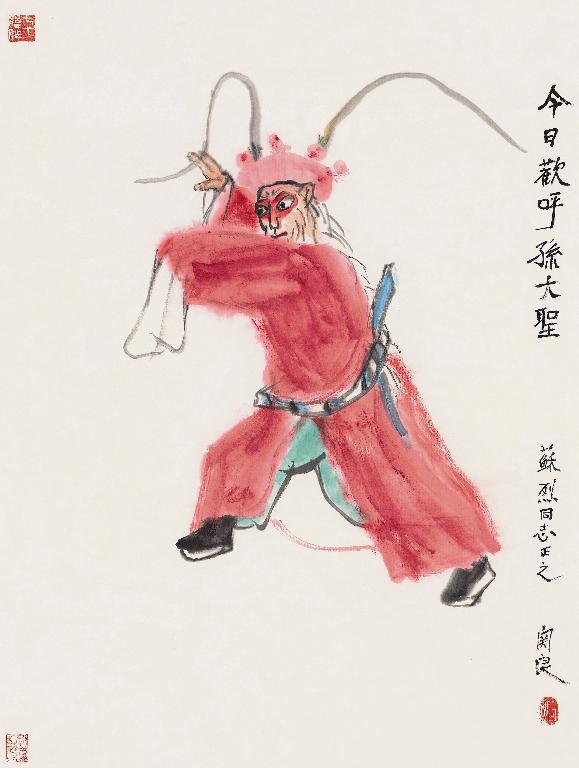 今日歡呼孫大聖
蘇烈同志正之
關良